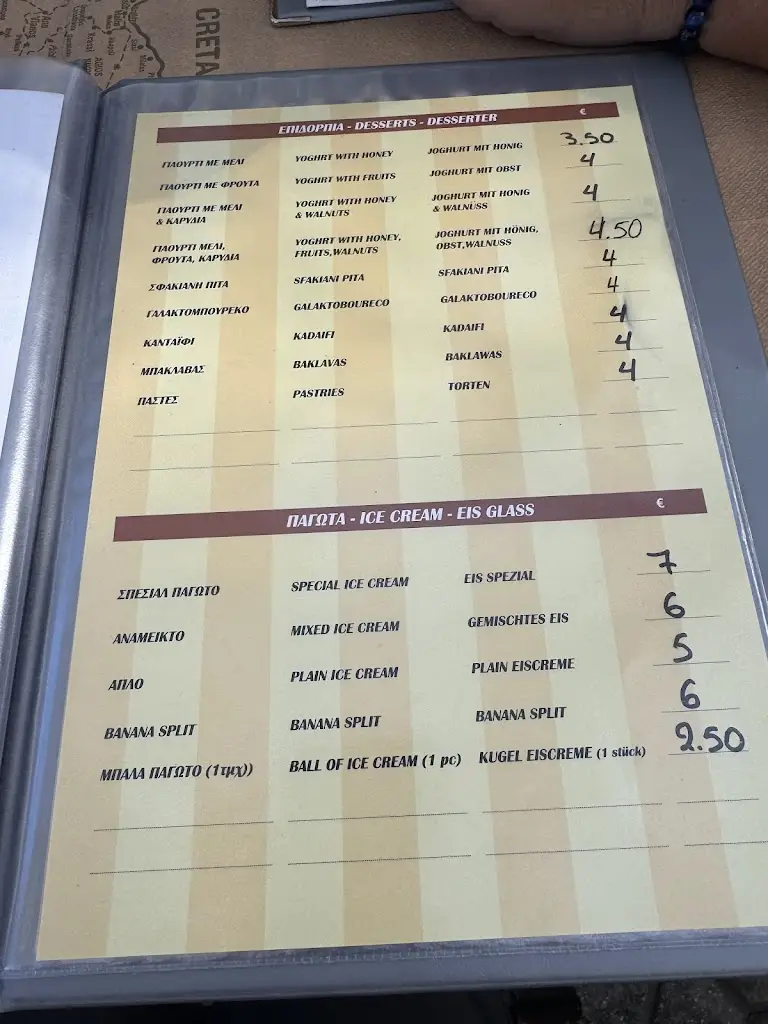 CRETA
ΕΠΙΔΟΡΠΙΑ - DESSERTS - DESSERTER €
ΓΙΑΟΥΡΤΙ ΜΕ ΜΕΛΙ YOGHRT WITH HONEY JOGHURT MIT HONIG 3.50
ΓΙΑΟΥΡΤΙ ΜΕ ΦΡΟΥΤΑ YOGHRT WITH FRUITS JOGHURT MIT OBST 4
ΓΙΑΟΥΡΤΙ ΜΕ ΜΕΛΙ YOGHRT WITH HONEY JOGHURT MIT HONIG 4
& ΚΑΡΥΔΙΑ & WALNUTS & WALNUSS
ΓΙΑΟΥΡΤΙ ΜΕΛΙ, YOGHRT WITH HONEY, JOGHURT MIT HÖNIG, 4.50
ΦΡΟΥΤΑ, ΚΑΡΥΔΙΑ FRUITS,WALNUTS OBST,WALNUSS
ΣΦΑΚΙΑΝΗ ΠΙΤΑ SFAKIANI PITA SFAKIANI PITA 4
ΓΑΛΑΚΤΟΜΠΟΥΡΕΚΟ GALAKTOBOURECO GALAKTOBOURECO 4
ΚΑΝΤΑΪΦΙ KADAIFI KADAIFI 4
ΜΠΑΚΛΑΒΑΣ BAKLAVAS BAKLAWAS 4
ΠΑΣΤΕΣ PASTRIES TORTEN 4
ΠΑΓΩΤΑ - ICE CREAM - EIS GLASS €
ΣΠΕΣΙΑΛ ΠΑΓΩΤΟ SPECIAL ICE CREAM EIS SPEZIAL 7
ΑΝΑΜΕΙΚΤΟ MIXED ICE CREAM GEMISCHTES EIS 6
ΑΠΛΟ PLAIN ICE CREAM PLAIN EISCREME 5
BANANA SPLIT BANANA SPLIT BANANA SPLIT 6
ΜΠΑΛΑ ΠΑΓΩΤΟ (1τμχ)) BALL OF ICE CREAM (1 pc) KUGEL EISCREME (1 stück) 2.50